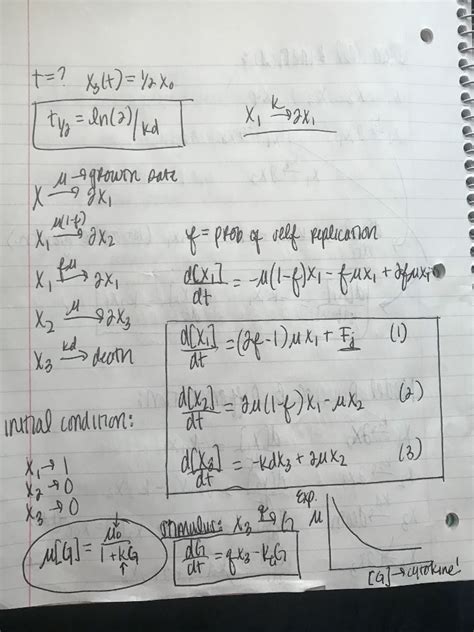 t=? X₃(t) = 1/2 X₀
t₁/₂ = ln(2)/kd
X₁ →k 2X₁
μ → growth rate
X →μ 2X₁
X₁ →μ(1-f) 2X₂
f = prob of self replication
X₁ →fμ 2X₁
d[X₁]/dt = -μ(1-f)X₁ - fμX₁ + 2fμX₁
X₂ →μ 2X₃
X₃ →kd death
d[X₁]/dt = (2f-1)μX₁ + Fj (1)
d[X₂]/dt = 2μ(1-f)X₁ - μX₂ (2)
initial condition:
d[X₃]/dt = -kdX₃ + 2μX₂ (3)
X₁ → 1
X₂ → 0
X₃ → 0
stimulus: X₃ →q G
Exp.
μ
μ[G] = μ₀/1+kG
dG/dt = qX₃ - kGG
[G] → cytokine!